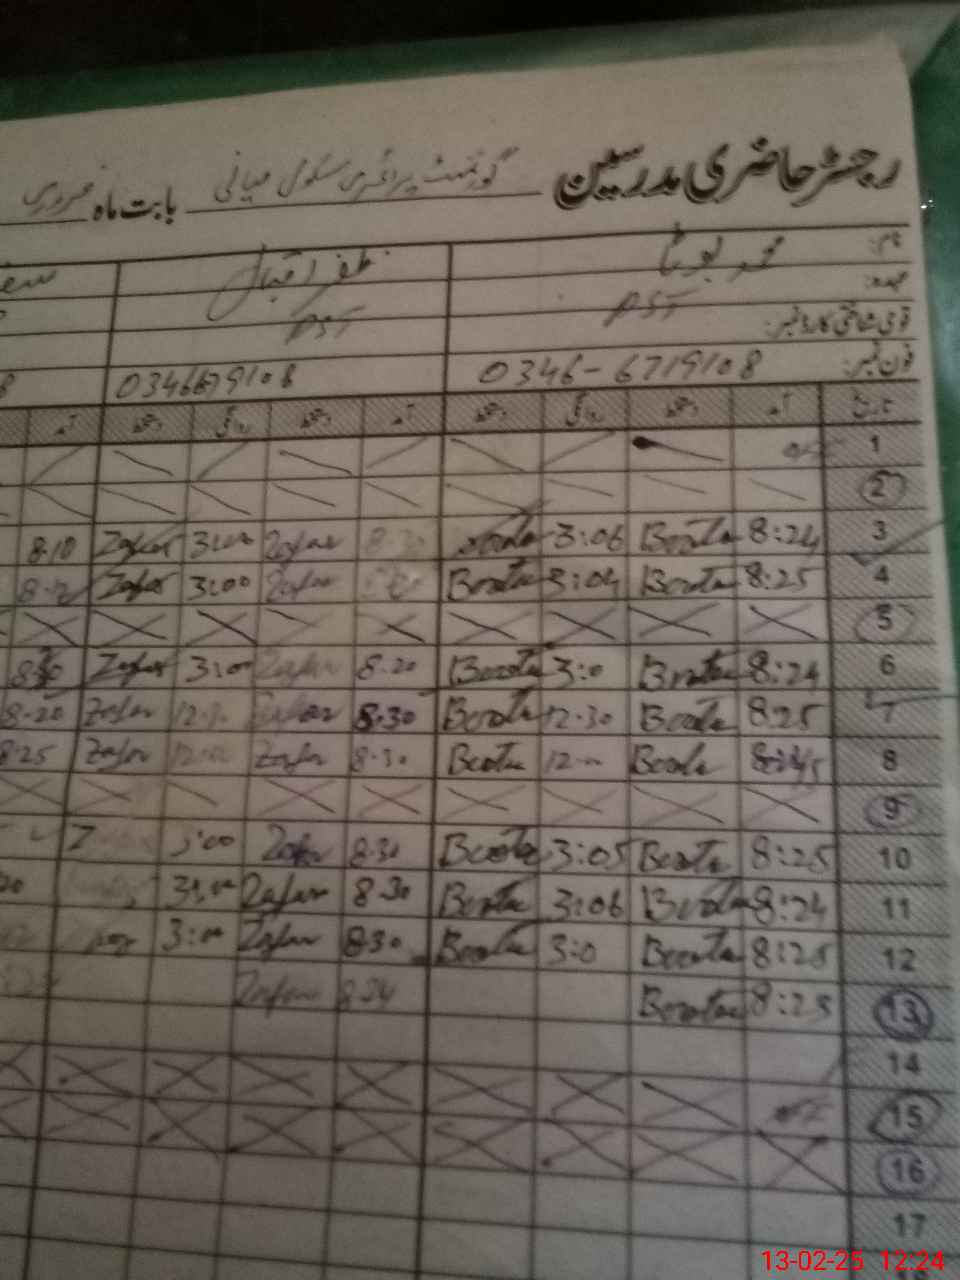 رجسٹر حاضری مدرسین گورنمنٹ پرائمری سکول میانی بابت ماہ فروری
نام: محمد بوٹا ظفر اقبال
عہدہ: PST PST
قومی شناختی کارڈ نمبر:
فون نمبر: 0346-6719108 0346679108
تاریخ آمد دستخط روانگی دستخط آمد دستخط روانگی دستخط آمد
1
2
3 8:24 Boota 3:06 Boota Zafar Zafar 8.10
4 8:25 Boota 3:04 Boota Zafar 3:00 Zafar
5
6 8:24 Boota 3:0 Boota 8.20 Zafar 3:00 Zafar
7 8:25 Boota 12.30 Boota 8.30 Zafar Zafar 8-20
8 Boota 12- Boota 8.30 Zafar Zafar 8:25
9
10 8:25 Boota 3:05 Boota 8.30 Zafar 3:00 Z
11 8:24 Boota 3:06 Boota 8.30 Zafar
12 8:25 Boota 3:0 Boota 8.30 Zafar 3:00
13 8:25 Boota 8.34 Zafar
14
15
16
17
13-02-25 12:24